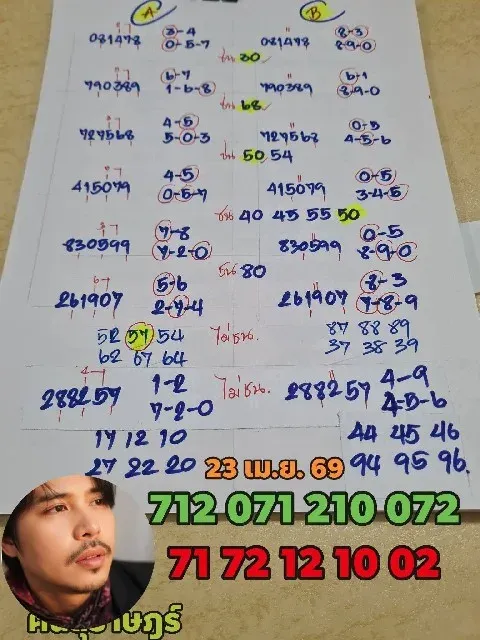 A B
081478 3-4 081478 8-3
0-5-7 8-9-0
ชน 30
790389 6-7 790389 6-1
1-6-8 8-9-0
ชน 68
727568 4-5 727568 0-5
5-0-3 4-5-6
ชน 50 54
415079 4-5 415079 0-5
0-5-7 3-4-5
ชน 40 45 55 50
830599 7-8 830599 0-5
7-2-0 8-9-0
ชน 80
261907 5-6 261907 8-3
2-7-4 7-8-9
52 57 54 ไม่ชน. 87 88 89
62 67 64 37 38 39
288257 1-2 ไม่ชน. 288257 4-9
7-2-0 4-5-6
17 12 10 44 45 46
27 22 20 94 95 96.
23 เม.ย. 69
712 071 210 072
71 72 12 10 02